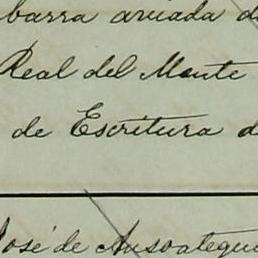 barra aviada d
Real del Monte
de Escritura d
José de Ansoategui